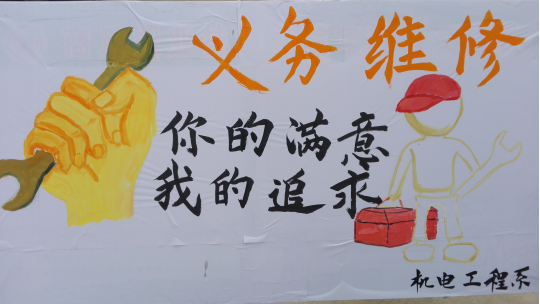 义务维修
你的满意
我的追求
机电工程系